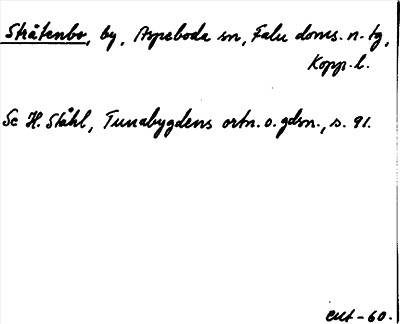 Stråtenbo, by, Aspeboda sn, Falu doms. n. tg,
Kopp. l.
Se H. Ståhl, Tunabygdens ortn. o. gdsn., s. 91.
EUt - 60.